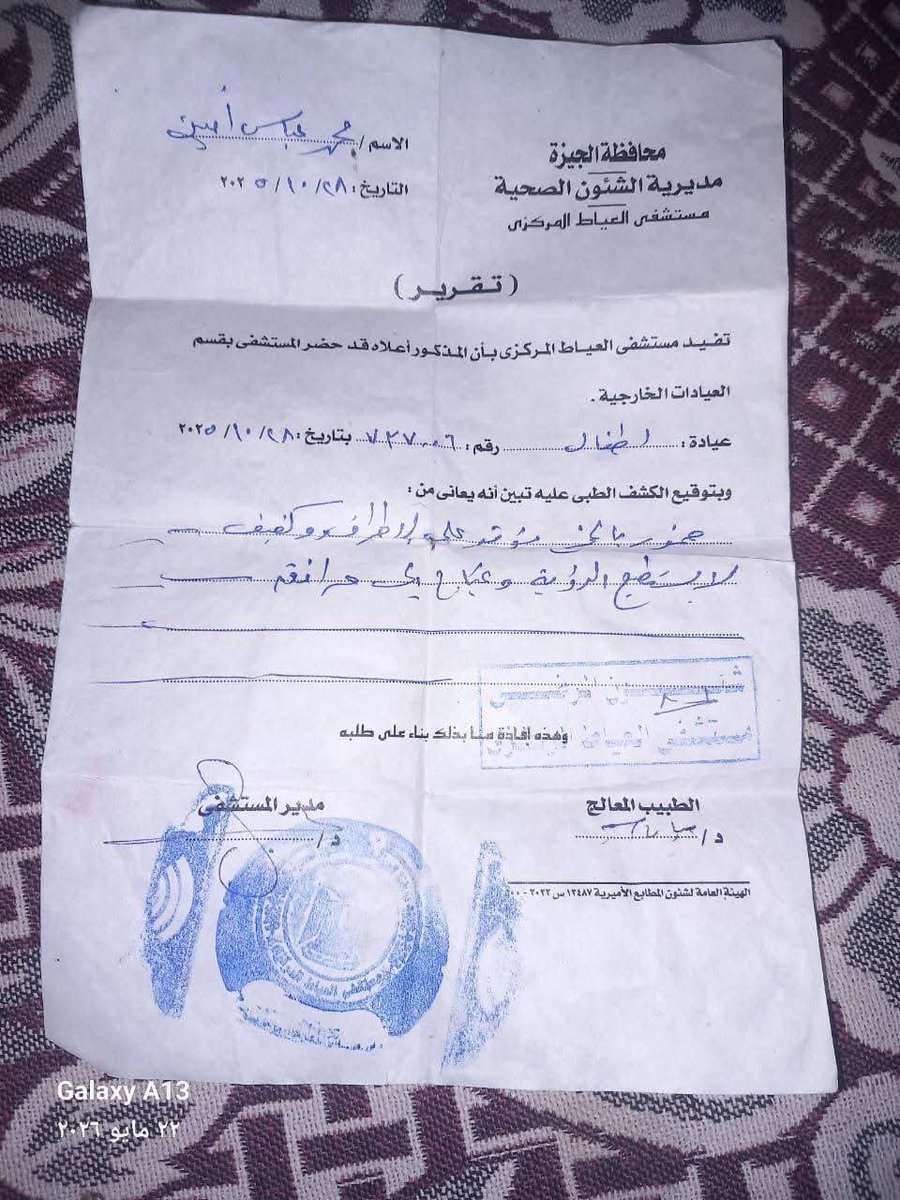 محافظة الجيزة
مديرية الشئون الصحية
مستشفى العياط المركزى
الاسم / محمد عباس أمين
التاريخ : ٢٠٢٥/١٠/٢٨
( تقرير )
تفيد مستشفى العياط المركزى بأن المذكور أعلاه قد حضر المستشفى بقسم
العيادات الخارجية .
عيادة : اطفال رقم : ٧٣٧٠٠٦ بتاريخ : ٢٠٢٥/١٠/٢٨
وبتوقيع الكشف الطبى عليه تبين أنه يعانى من :
ضمور بالمخ على الاطراف وكفيف
لا يستطيع الرؤية ويحتاج الى مرافق
شئون المرضى
مستشفى العياط المركزى
وهذه أفادة منا بذلك بناء على طلبه
الطبيب المعالج
د /
مدير المستشفى
د /
الهيئة العامة لشئون المطابع الأميرية ١٣٤٨٧ س ٢٠٢٢ -
Galaxy A13
٢٢ مايو ٢٠٢٦